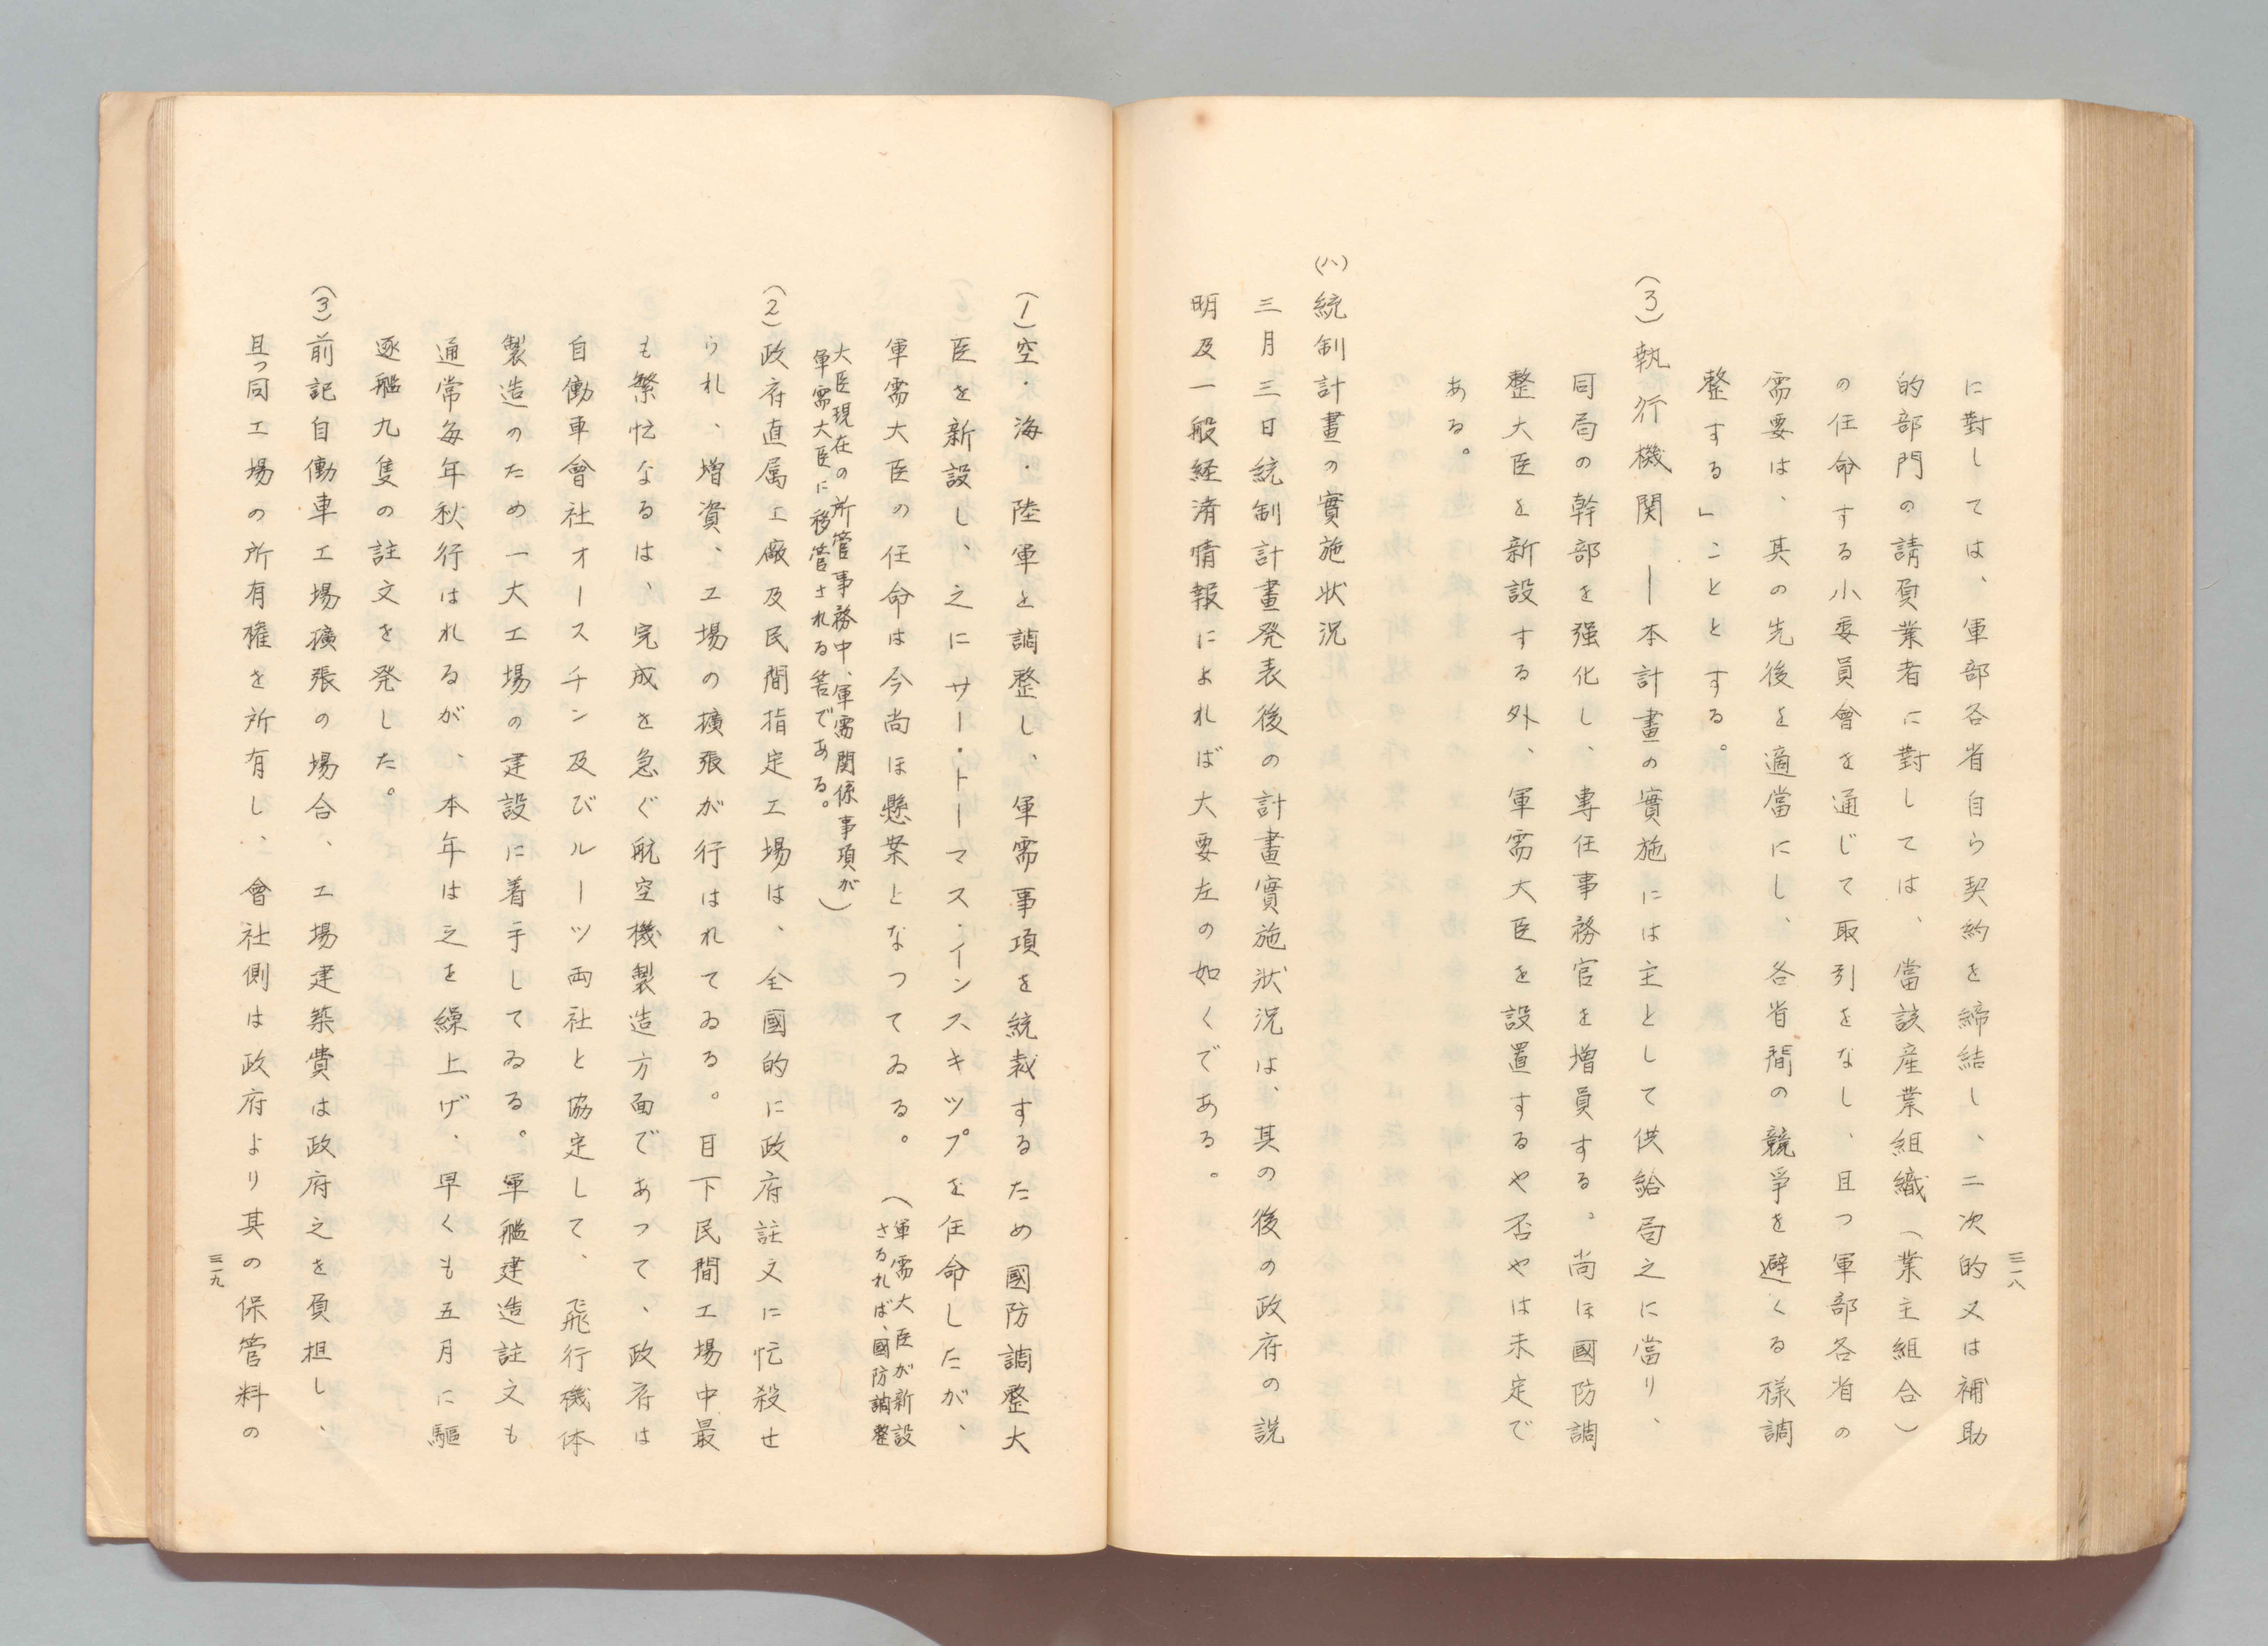 三一八
に對しては、軍部各省自ら契約を締結し、二次的又は補助
的部門の請負業者に對しては、當該産業組織（業主組合）
の任命する小委員會を通じて取引をなし、且つ軍部各省の
需要は、其の先後を適當にし、各省間の競爭を避くる様調
整する」こととする。
(3)執行機関―本計畫の實施には主として供給局之に當り、
同局の幹部を强化し、專任事務官を増員する。尚ほ國防調
整大臣を新設する外、軍需大臣を設置するや否やは未定で
ある。
(ハ)統制計畫の實施状况
三月三日統制計畫発表後の計畫實施状况は、其の後の政府の説
明及一般経済情報によれば大要左の如くである。
(1)空・海・陸軍を調整し、軍需事項を統裁するため國防調整大
臣を新設し、之にサー・トーマス・インスキップを任命したが、
軍需大臣の任命は今尚ほ懸案となつてゐる。（軍需大臣が新設
さるれば、國防調整
大臣現在の所管事務中、軍需関係事項が
軍需大臣に移管される筈である。）
(2)政府直属工廠及民間指定工場は、全國的に政府註文に忙殺せ
られ、増資、工場の擴張が行はれてゐる。目下民間工場中最
も繁忙なるは、完成を急ぐ航空機製造方面であつて、政府は
自働車會社オースチン及びルーツ両社と協定して、飛行機体
製造のため一大工場の建設に着手してゐる。軍艦建造註文も
通常毎年秋行はれるが、本年は之を繰上げ、早くも五月に驅
逐艦九隻の註文を発した。
(3)前記自働車工場擴張の場合、工場建築費は政府之を負担し、
且つ同工場の所有權を所有し、會社側は政府より其の保管料の
三一九